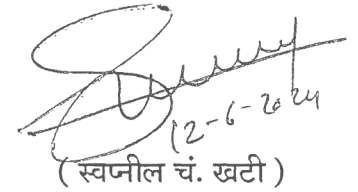 12-6-2024
( स्वप्नील चं. खटी )